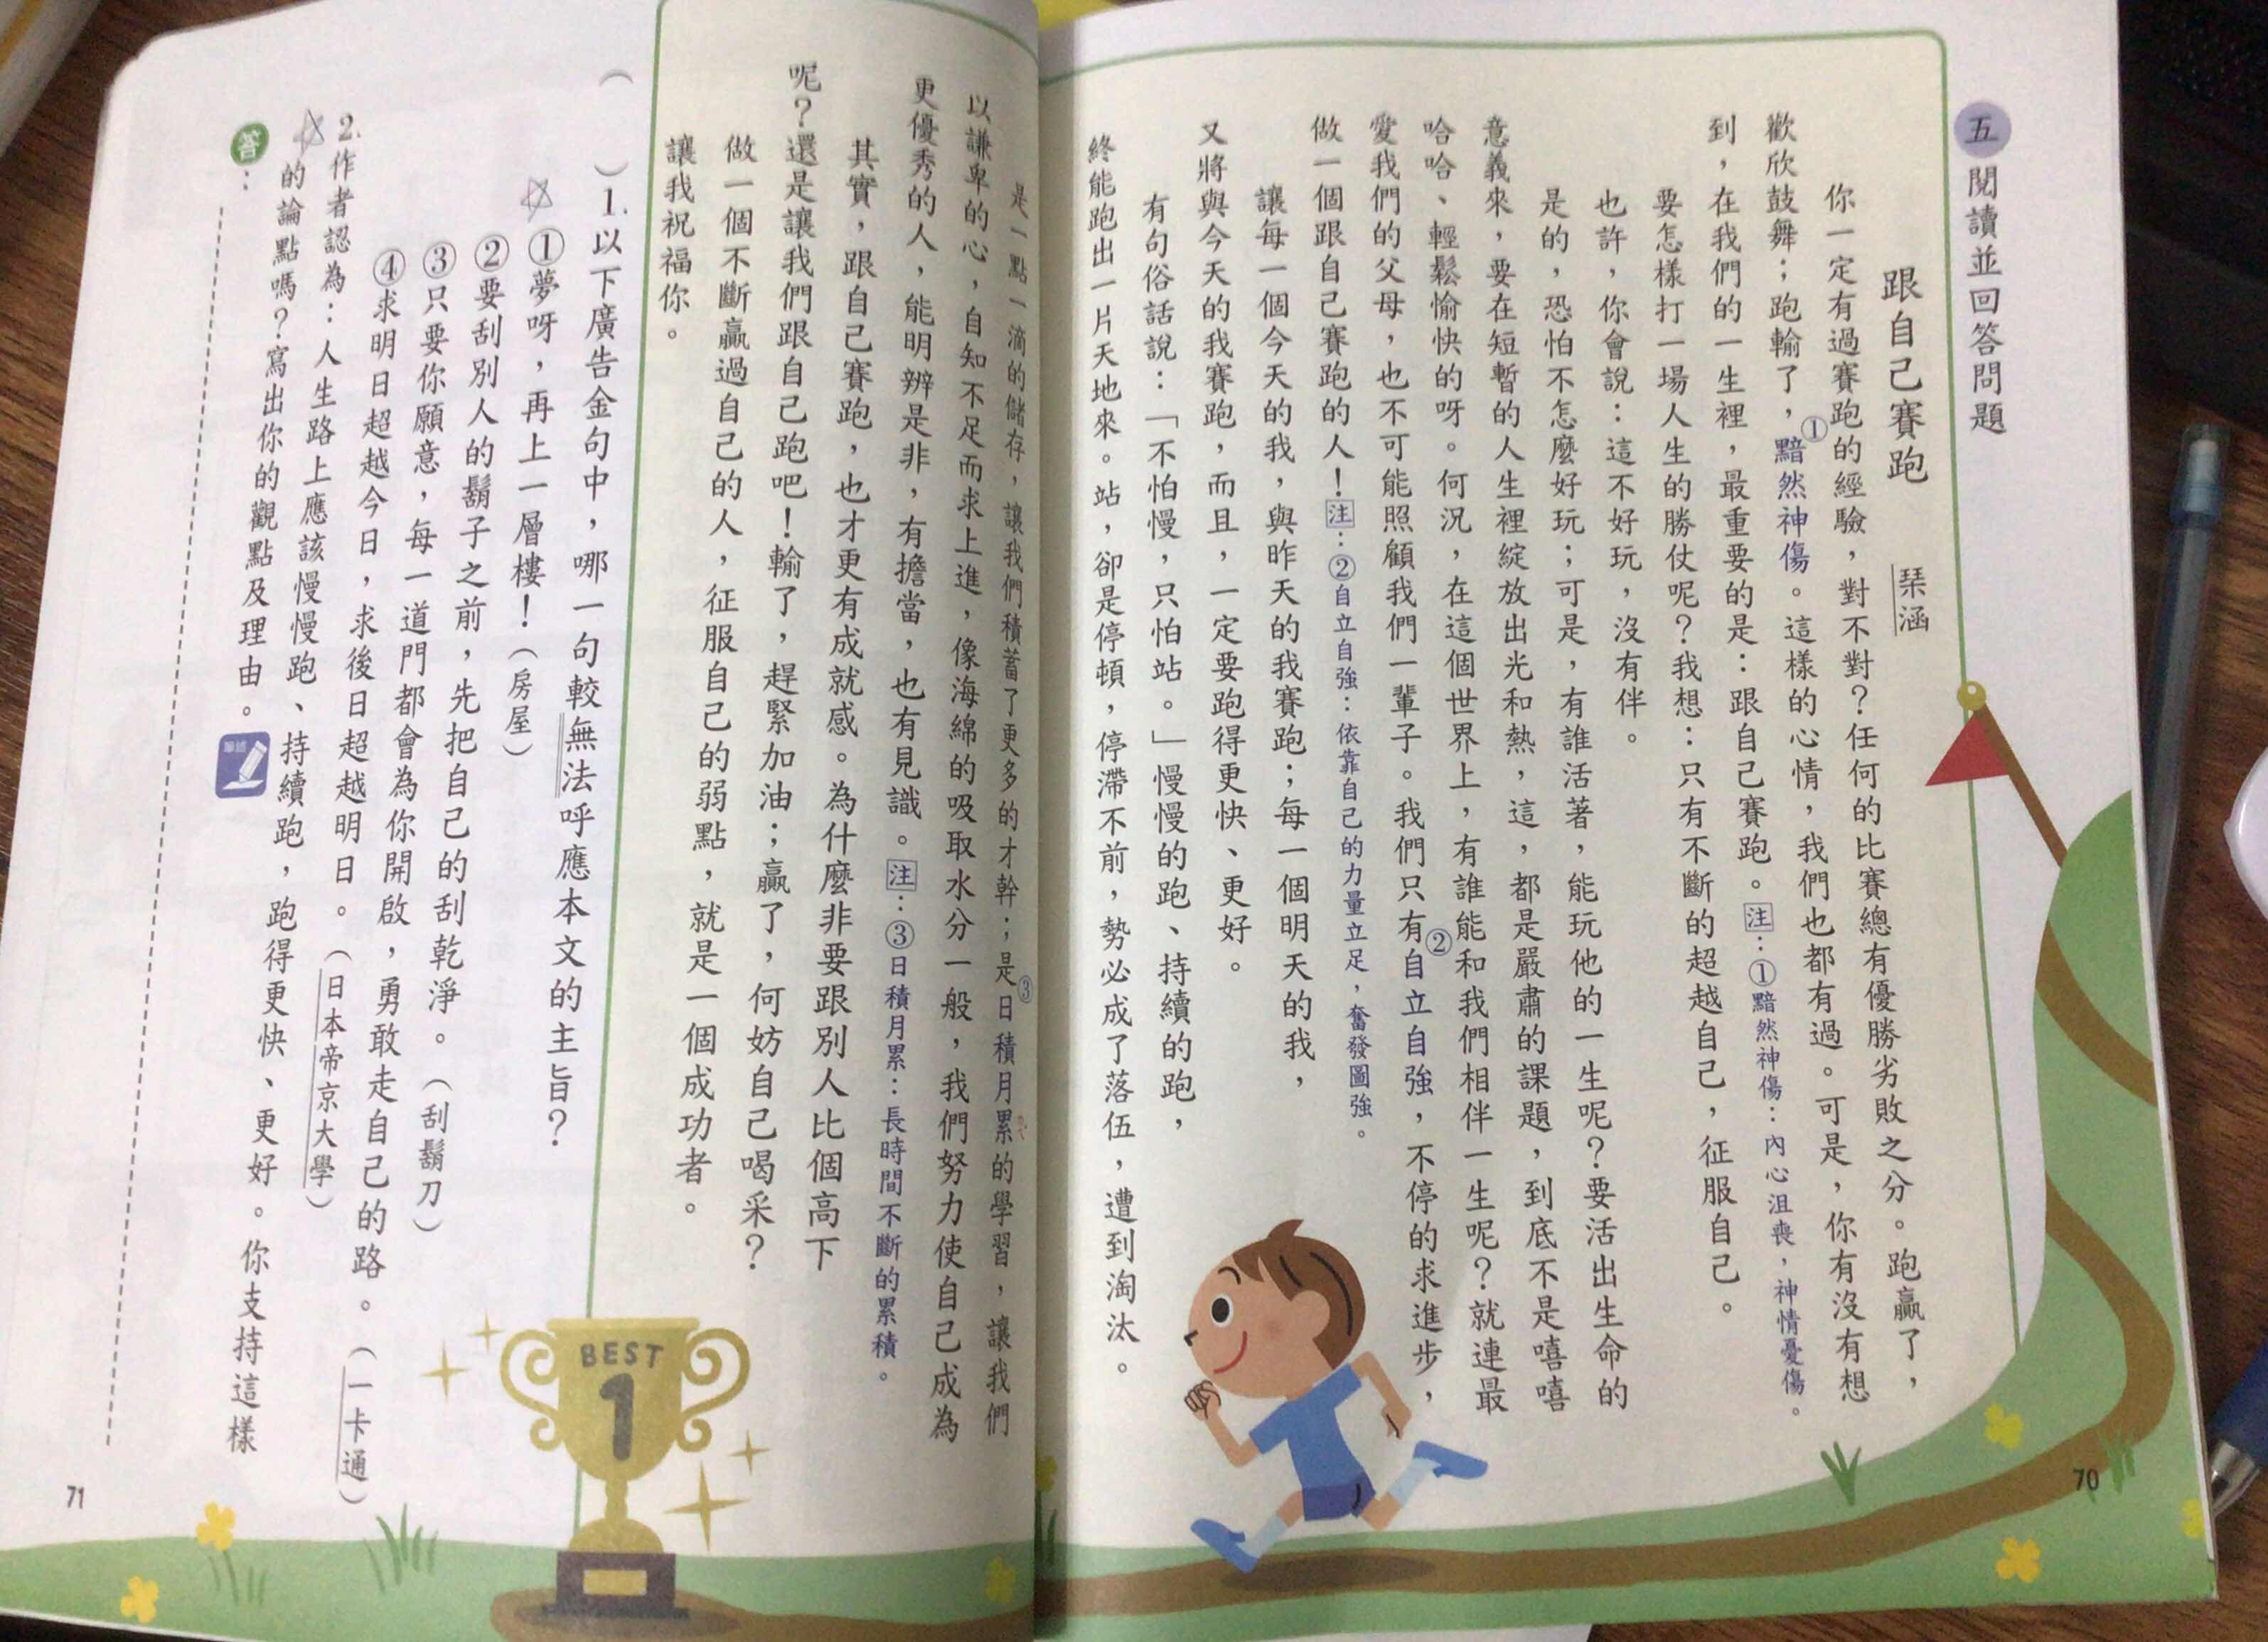 五 閱讀並回答問題
跟自己賽跑 琹涵
你一定有過賽跑的經驗，對不對？任何的比賽總有優勝劣敗之分。跑贏了，
歡欣鼓舞；跑輸了，①黯然神傷。這樣的心情，我們也都有過。可是，你有沒有想
到，在我們的一生裡，最重要的是：跟自己賽跑。注：①黯然神傷：內心沮喪，神情憂傷。
要怎樣打一場人生的勝仗呢？我想：只有不斷的超越自己，征服自己。
也許，你會說：這不好玩，沒有伴。
是的，恐怕不怎麼好玩；可是，有誰活著，能玩他的一生呢？要活出生命的
意義來，要在短暫的人生裡綻放出光和熱，這，都是嚴肅的課題，到底不是嘻嘻
哈哈、輕鬆愉快的呀。何況，在這個世界上，有誰能和我們相伴一生呢？就連最
愛我們的父母，也不可能照顧我們一輩子。我們只有②自立自強，不停的求進步，
做一個跟自己賽跑的人！注：②自立自強：依靠自己的力量立足，奮發圖強。
讓每一個今天的我，與昨天的我賽跑；每一個明天的我，
又將與今天的我賽跑，而且，一定要跑得更快、更好。
有句俗話說：「不怕慢，只怕站。」慢慢的跑、持續的跑，
終能跑出一片天地來。站，卻是停頓，停滯不前，勢必成了落伍，遭到淘汰。
70
是一點一滴的儲存，讓我們積蓄了更多的才幹；是③日積月累的學習，讓我們
以謙卑的心，自知不足而求上進，像海綿的吸取水分一般，我們努力使自己成為
更優秀的人，能明辨是非，有擔當，也有見識。注：③日積月累：長時間不斷的累積。
其實，跟自己賽跑，也才更有成就感。為什麼非要跟別人比個高下
呢？還是讓我們跟自己跑吧！輸了，趕緊加油；贏了，何妨為自己喝采？
做一個不斷贏過自己的人，征服自己的弱點，就是一個成功者。
讓我祝福你。
BEST
1
（ ）1.以下廣告金句中，哪一句較無法呼應本文的主旨？
①夢呀，再上一層樓！（房屋）
②要刮別人的鬍子之前，先把自己的刮乾淨。（刮鬍刀）
③只要你願意，每一道門都會為你開啟，勇敢走自己的路。（一卡通）
④求明日超越今日，求後日超越明日。（日本帝京大學）
2.作者認為：人生路上應該慢慢跑、持續跑，跑得更快、更好。你支持這樣
的論點嗎？寫出你的觀點及理由。
答：
71